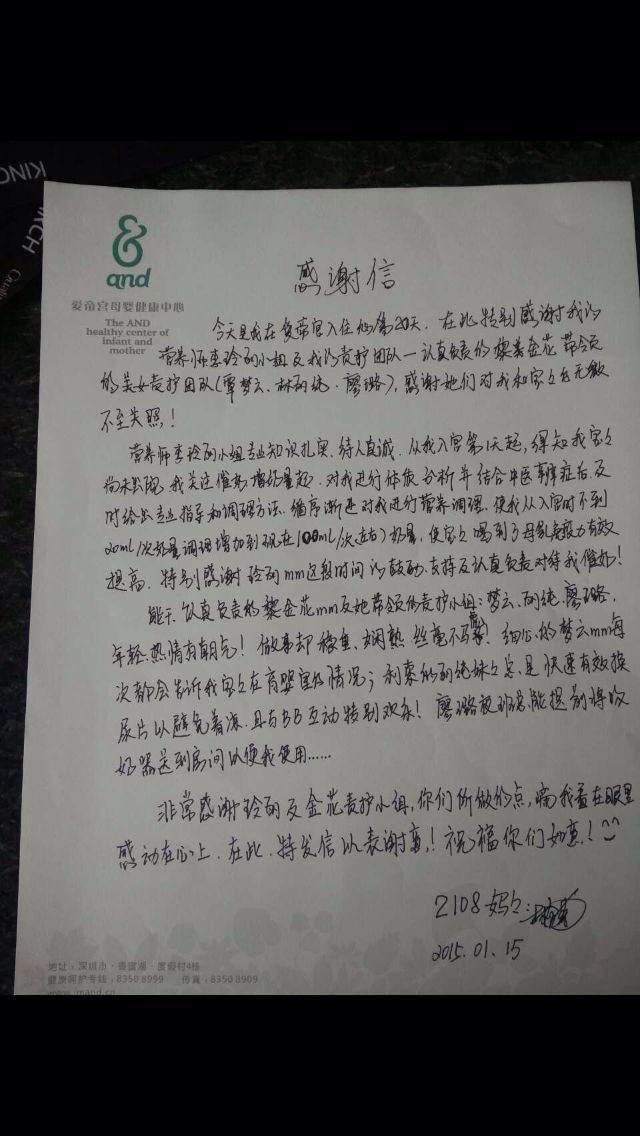 KINC
RCH
and
爱帝宫母婴健康中心
The AND
healthy center of
infant and
mother
感谢信
今天是我在爱帝宫入住的第20天.在此特别感谢我的
营养师李玲丽小姐及我的责护团队—认真负责的黎金花带领
的美女责护团队(覃梦云、林丽纯、廖璐),感谢她们对我和宝宝无微
不至关照!
营养师李玲丽小姐专业知识扎实、待人真诚.从我入宫第1天起,得知我宝宝
尚未出现,我关注催奶增奶量起.对我进行体质分析并结合中医辨症后,及
时给出专业指导和调理方法.循序渐进对我进行营养调理.使我从入宫时不到
20ml/次奶量调理增加到现在100ml/次(左右)奶量,使宝宝喝到了母乳免疫力有效
提高.特别感谢玲丽mm这段时间的鼓励、支持及认真负责对待我催奶!
能干、认真负责的黎金花mm及她带领的责护小组:梦云、丽纯、廖璐.
年轻、热情有朝气!做事却稳重、娴熟、丝毫不马虎!细心的梦云mm每
次都会告诉我宝宝在育婴室的情况;利索的丽纯妹妹总是快速有效换
尿片以避免着凉.且与BB互动特别欢乐!廖璐夜班总能提前将吸
奶器送到房间以便我使用……
非常感谢玲丽及金花责护小组,你们所做的点滴我看在眼里
感动在心上.在此.特发信以表谢意!祝福你们如意!
2108妈妈:
2015.01.15
地址:深圳市·香蜜湖·度假村4栋
健康呵护专线:8350 8999 传真:8350 8909